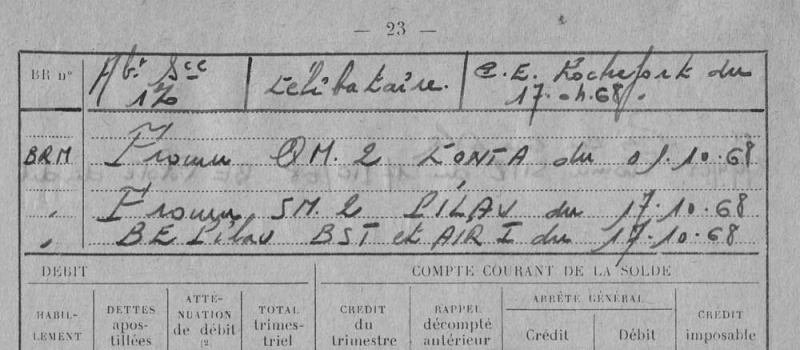 — 23 —
BR n° Abt Sce 1% Célibataire. C.E. Rochefort du 17.04.68.
BRM Promu QM. 2 du 01.10.68
" Promu SM. 2 PILAV du 17.10.68
" BE Pilav BST et AIR I du 17.10.68
DEBIT COMPTE COURANT DE LA SOLDE
HABIL-LEMENT DETTES apos-tillées ATTÉ-NUATION de débit (2 TOTAL trimes-triel CREDIT du trimestre RAPPEL décompté antérieur ARRÊTÉ GÉNÉRAL Crédit Débit CRÉDIT imposable